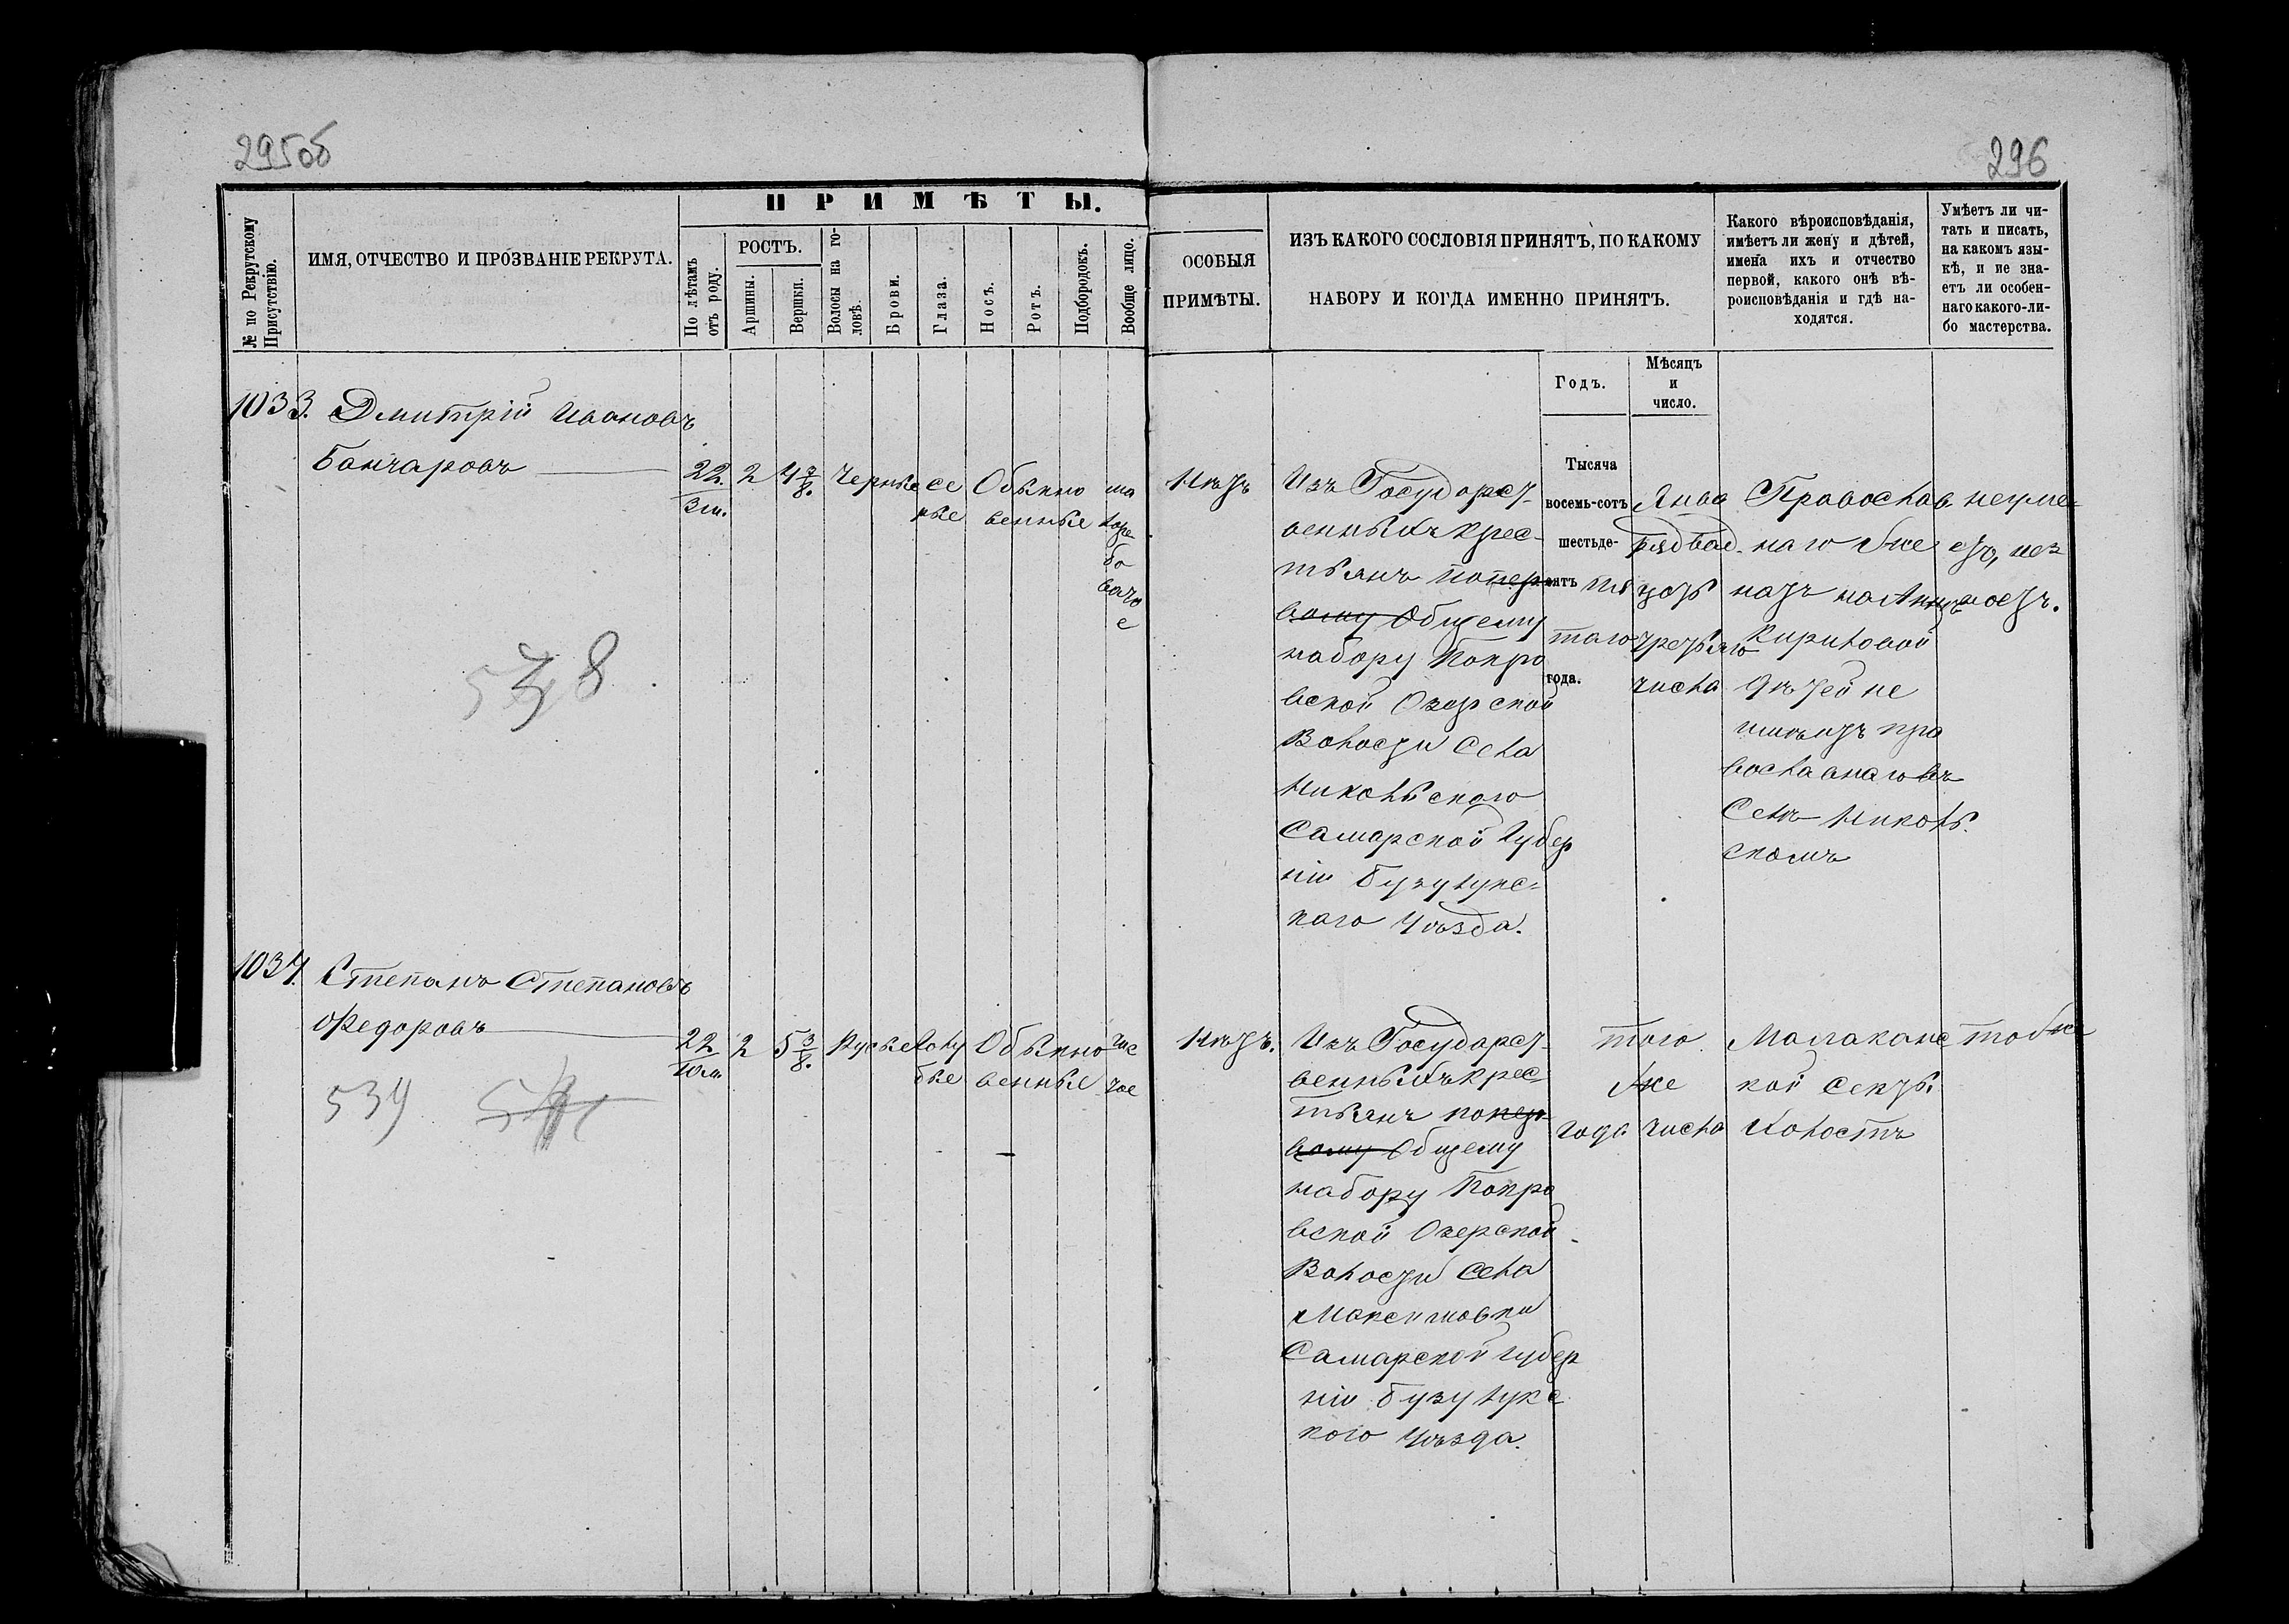 295об
296
ПРИМѢТЫ.
№ по Рекрутскому Присутствію.
ИМЯ, ОТЧЕСТВО И ПРОЗВАНІЕ РЕКРУТА.
По лѣтамъ отъ роду.
РОСТЪ.
Аршины.
Вершки.
Волосы на головѣ.
Брови.
Глаза.
Носъ.
Ротъ.
Подбородокъ.
Вообще лицо.
ОСОБЫЯ
ПРИМѢТЫ.
ИЗЪ КАКОГО СОСЛОВІЯ ПРИНЯТЪ, ПО КАКОМУ
НАБОРУ И КОГДА ИМЕННО ПРИНЯТЪ.
Какого вѣроисповѣданія,
имѣетъ ли жену и дѣтей,
имена ихъ и отчество
первой, какого онѣ вѣ-
роисповѣданія и гдѣ на-
ходятся.
Умѣетъ ли чи-
тать и писать,
на какомъ язы-
кѣ, и не зна-
етъ ли особен-
наго какого-ли-
бо мастерства.
Годъ.
Мѣсяцъ
и
число.
1033. Дмитрій Ивановъ
Банчаровъ
22.
3 м.
2
4 3/8.
Черные
се
рые
Обыкно
венные
ма
ло
бо
вато
е
Нѣтъ
Изъ Государст-
венныхъ крес-
тьянъ по пер
вому Общему
набору Покро
вской Озерской
Волости Села
Никольского
Самарской Губер
ніи Бузулукс-
каго Уѣзда.
Тысяча
восемь-сотъ
шестьде-
сятъ пя
таго
года.
Янва
ря двад-
цать
третьяго
числа
Православ
наго же
натъ на Аннѣ
Кириловой
дѣтей не
имѣютъ пра
вославнаго въ
Селѣ Николь
скомъ
неуме-
етъ, нез
наетъ.
538
1034. Степанъ Степановъ
Федоровъ
22
10 м.
2
5 3/8.
Русые
Голу
бые
Обыкно
венные
чис
тое
Нѣтъ.
Изъ Государст-
венныхъ крес-
тьянъ по пер-
вому Общему
набору Покро
вской Озерской
Волости Села
Максимовки
Самарской Губер
ніи Бузулукс
кого Уѣзда.
того
же
года числа
Малаканс
кой секты
Холостъ
тоже
534